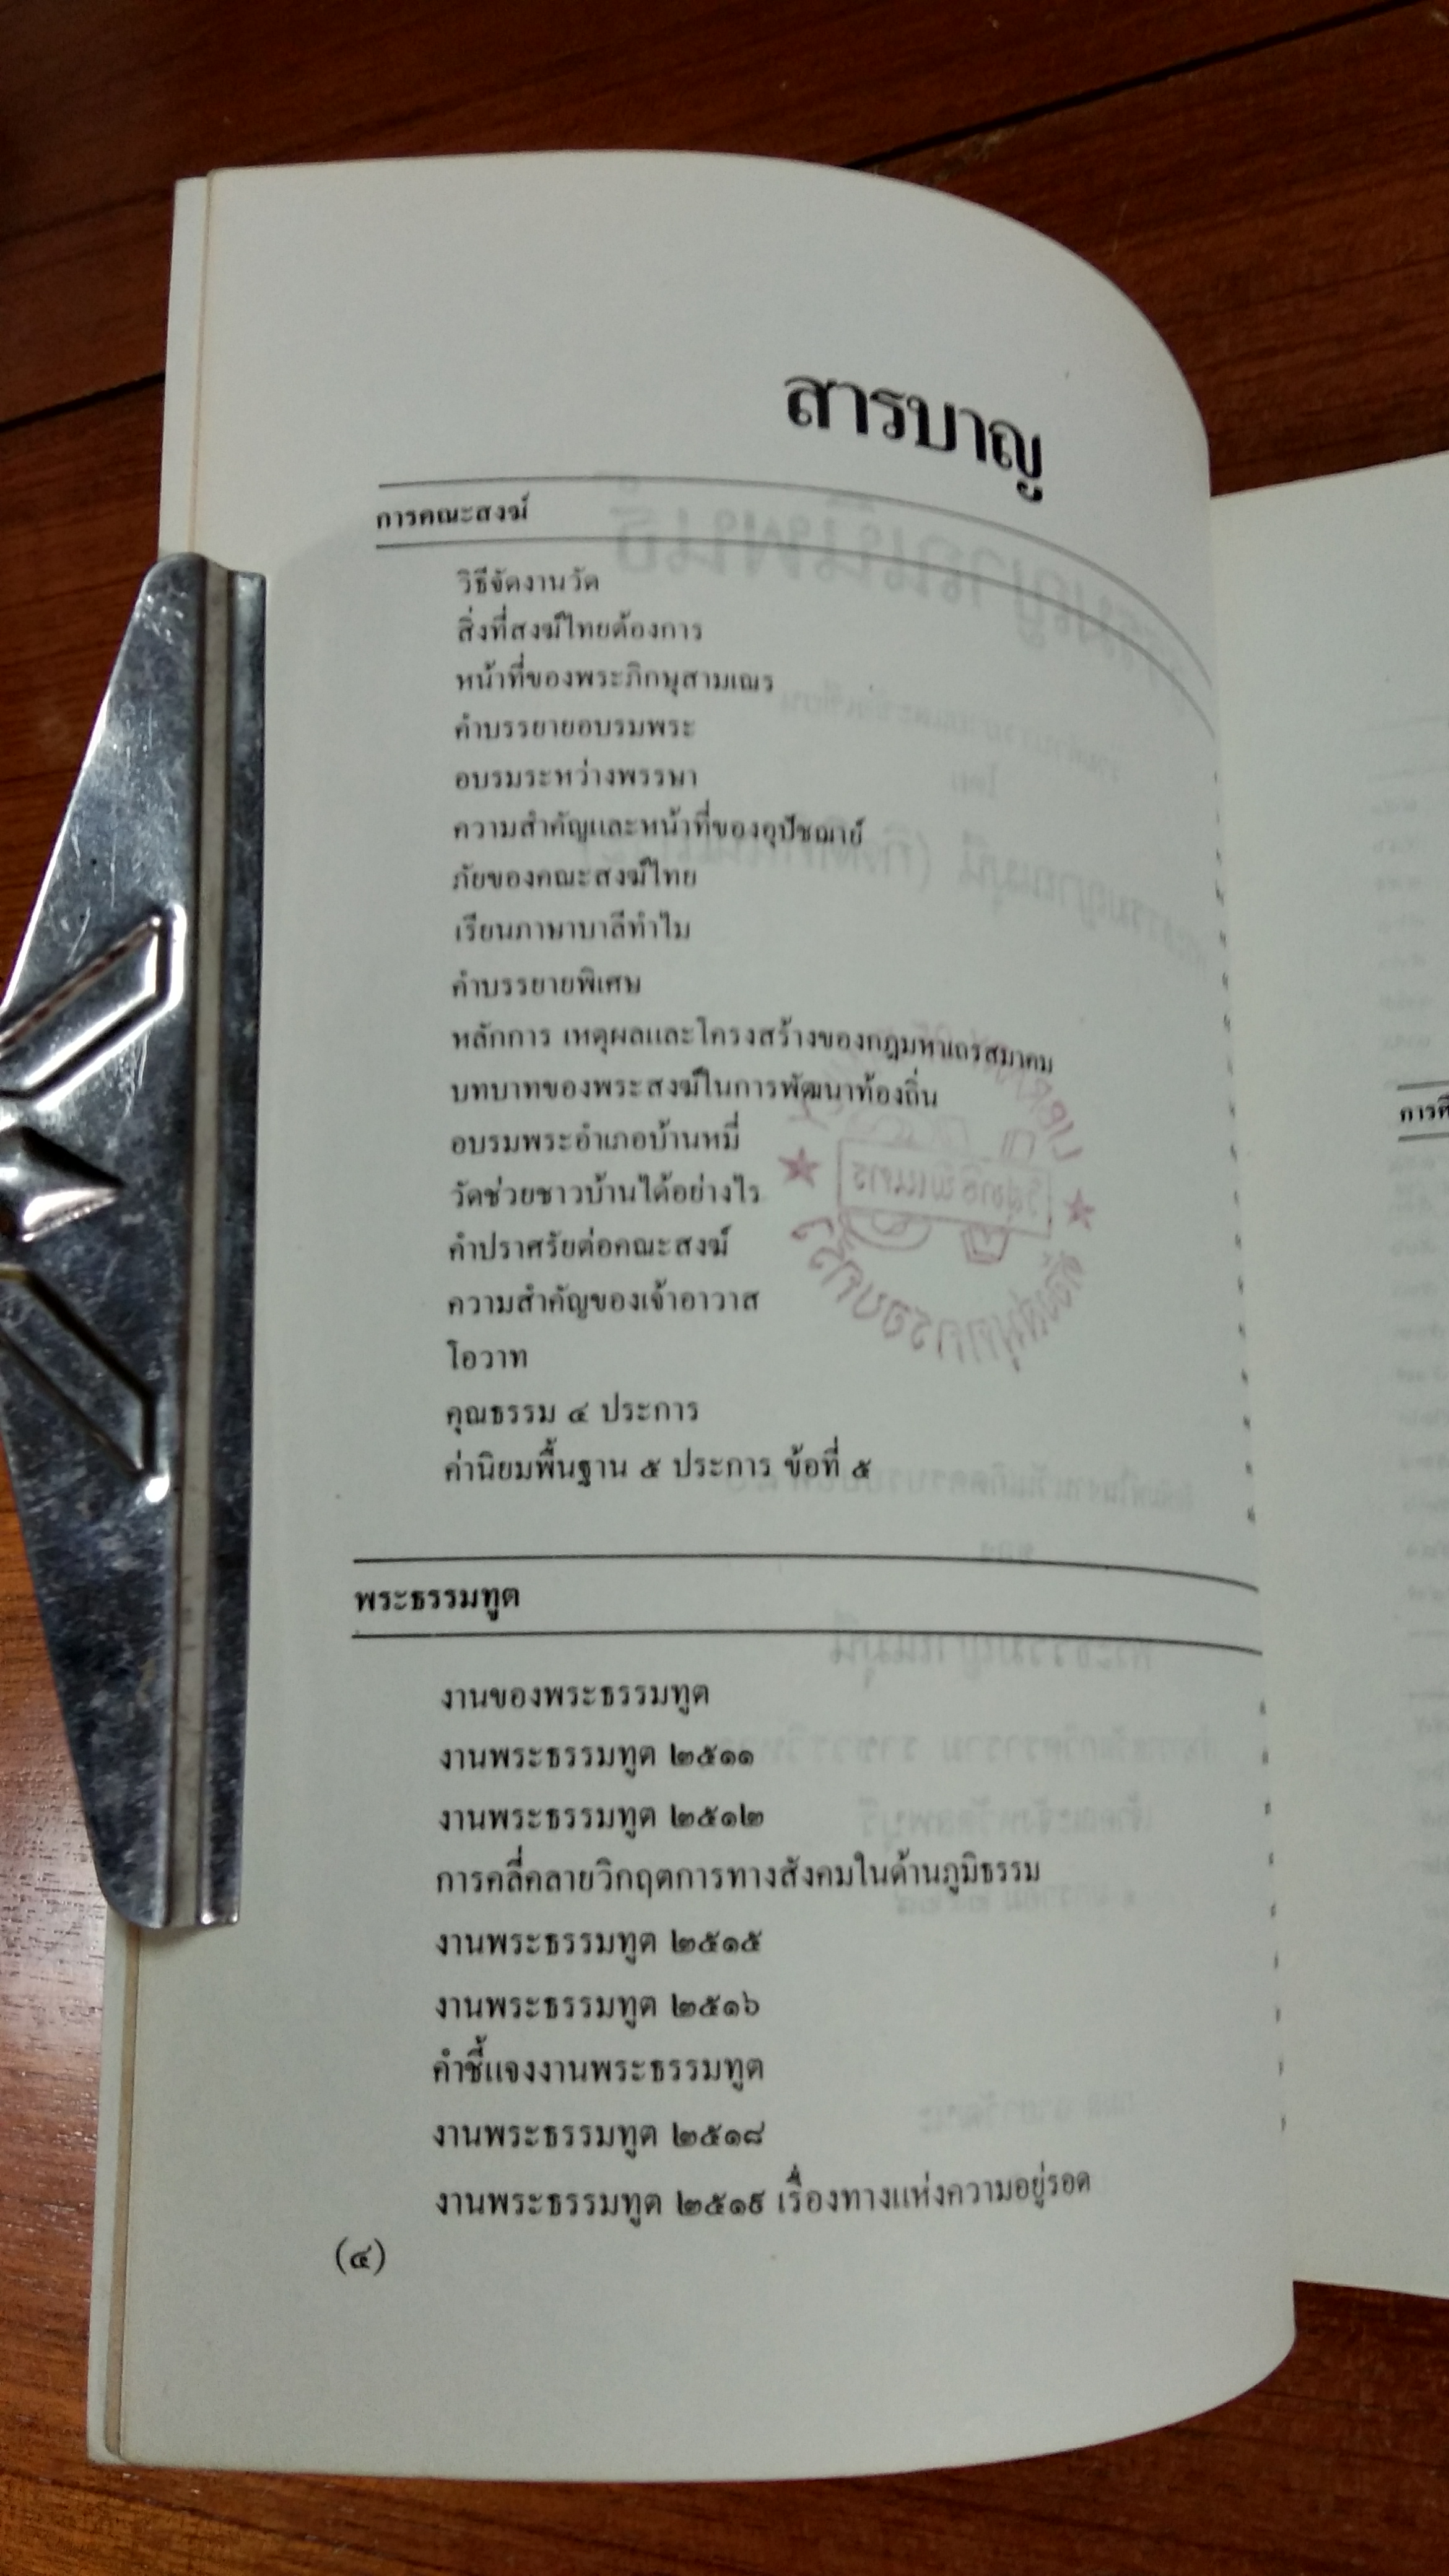 สารบาญ
การคณะสงฆ์
วิธีจัดงานวัด
สิ่งที่สงฆ์ไทยต้องการ
หน้าที่ของพระภิกษุสามเณร
คำบรรยายอบรมพระ
อบรมระหว่างพรรษา
ความสำคัญและหน้าที่ของอุปัชฌาย์
ภัยของคณะสงฆ์ไทย
เรียนภาษาบาลีทำไม
คำบรรยายพิเศษ
หลักการ เหตุผลและโครงสร้างของกฎมหาเถรสมาคม
บทบาทของพระสงฆ์ในการพัฒนาท้องถิ่น
อบรมพระอำเภอบ้านหมี่
วัดช่วยชาวบ้านได้อย่างไร
คำปราศรัยต่อคณะสงฆ์
ความสำคัญของเจ้าอาวาส
โอวาท
คุณธรรม ๔ ประการ
ค่านิยมพื้นฐาน ๕ ประการ ข้อที่ ๕
พระธรรมทูต
งานของพระธรรมทูต
งานพระธรรมทูต ๒๕๑๑
งานพระธรรมทูต ๒๕๑๒
การคลี่คลายวิกฤตการทางสังคมในด้านภูมิธรรม
งานพระธรรมทูต ๒๕๑๕
งานพระธรรมทูต ๒๕๑๖
คำชี้แจงงานพระธรรมทูต
งานพระธรรมทูต ๒๕๑๘
งานพระธรรมทูต ๒๕๑๙ เรื่องทางแห่งความอยู่รอด
(๔)